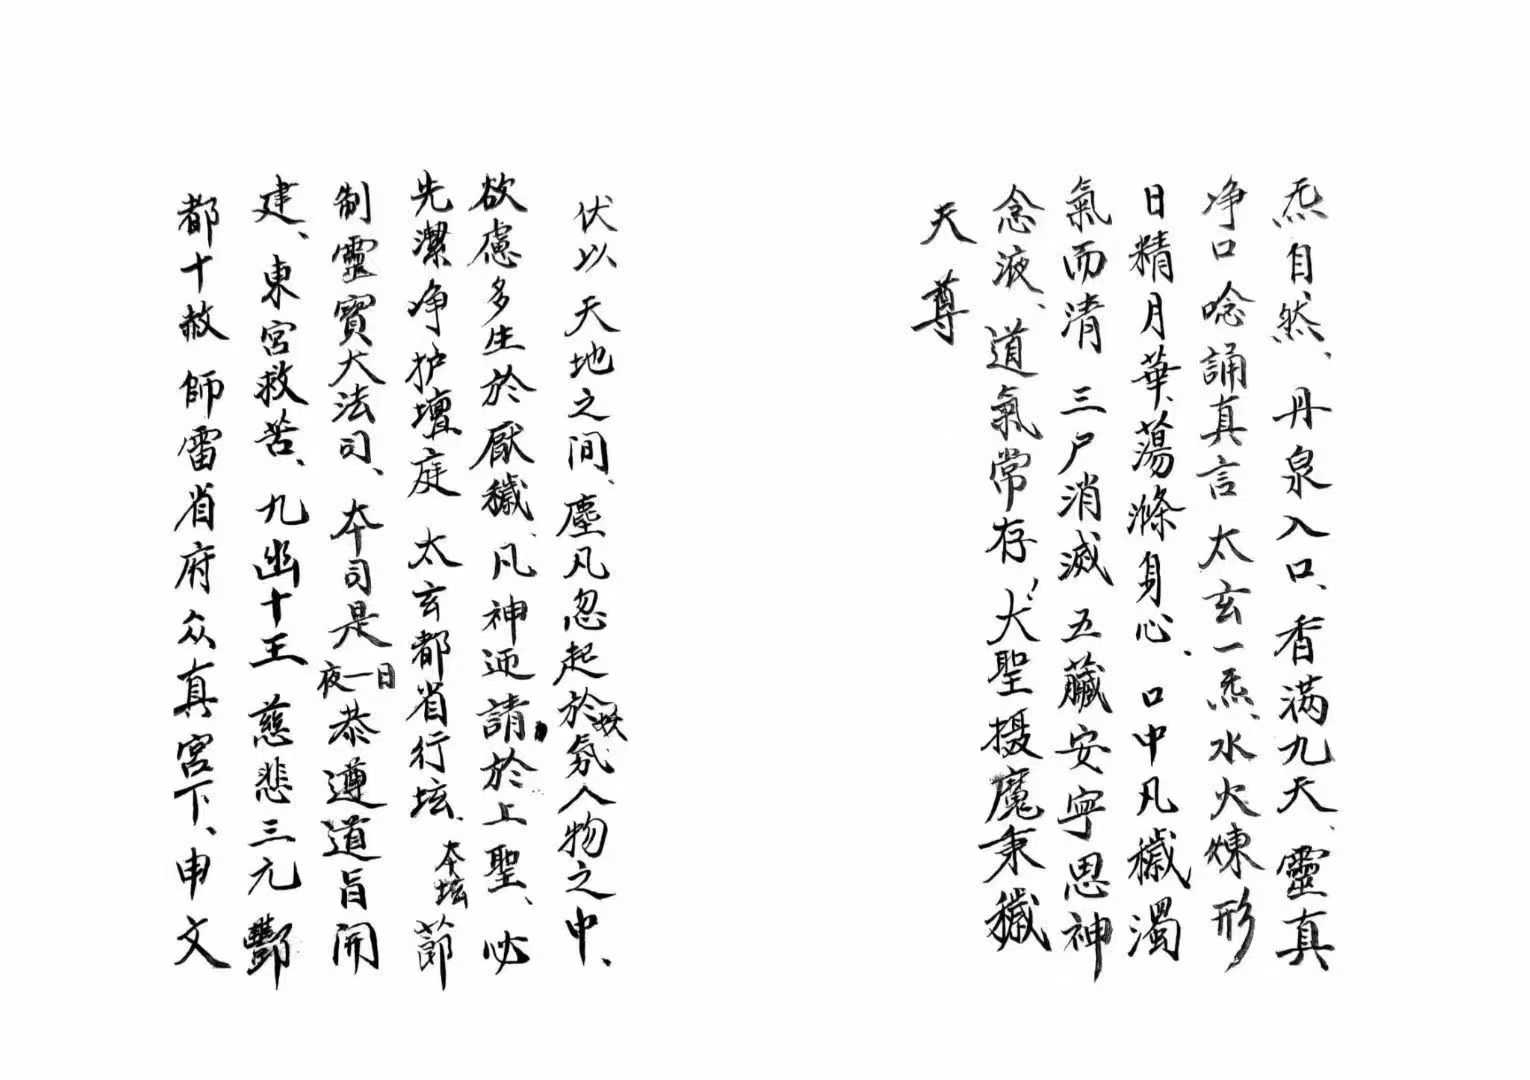 炁自然、丹泉入口、香满九天、靈真
净口唸誦真言太玄一炁、水火煉形
日精月華、蕩滌身心、口中凡穢濁
氣而清三尸消滅五藏安寧思神
念液、道氣常存、大聖摄魔秉穢
天尊
伏以天地之间、塵凡忽起於妖氛、人物之中、
欲慮多生於厭穢、凡神迊請於上聖、必
先潔净护壇庭太玄都省行坛、本坛節
制靈寳大法司、本司是日一夜恭遵道旨開
建、東宮救苦、九幽十王慈悲三元酆
都十赦師雷省府众真宮下、申文